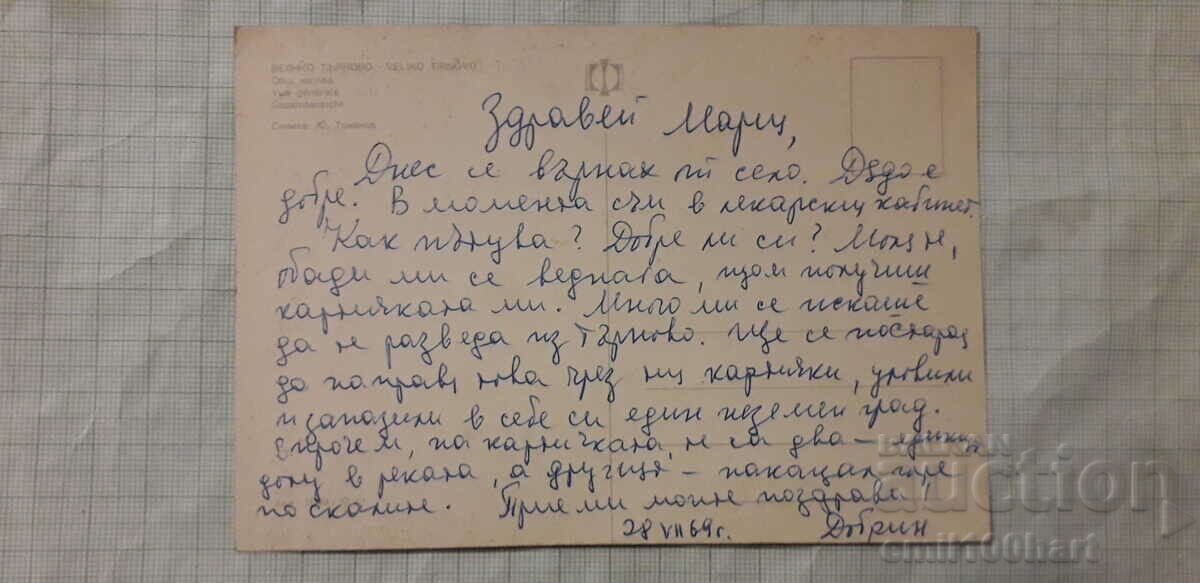 ВЕЛИКО ТЪРНОВО - VELIKO TIRNOVO
Общ изглед
Vue générale
Gesamtansicht
Снимка: Ю. Томанов
Здравей Мария,
Днес се върнах от село. Дядо е
добре. В момента съм в лекарския кабинет.
Как пътува? Добре ли си? Моля те,
обади ми се веднага, щом получиш
картичката ми. Много ми се искаше
да те разведа из Търново. Ще се постарая
да направя това чрез тия картички, уловили
и запазили в себе си един неземен град.
Впрочем, на картичката, те са два – единия
долу в реката, а другия – накацал горе
по скалите. Приеми моите поздрави,
28 VII 69 г. Добрин
BALKAN
auction
emil100hart